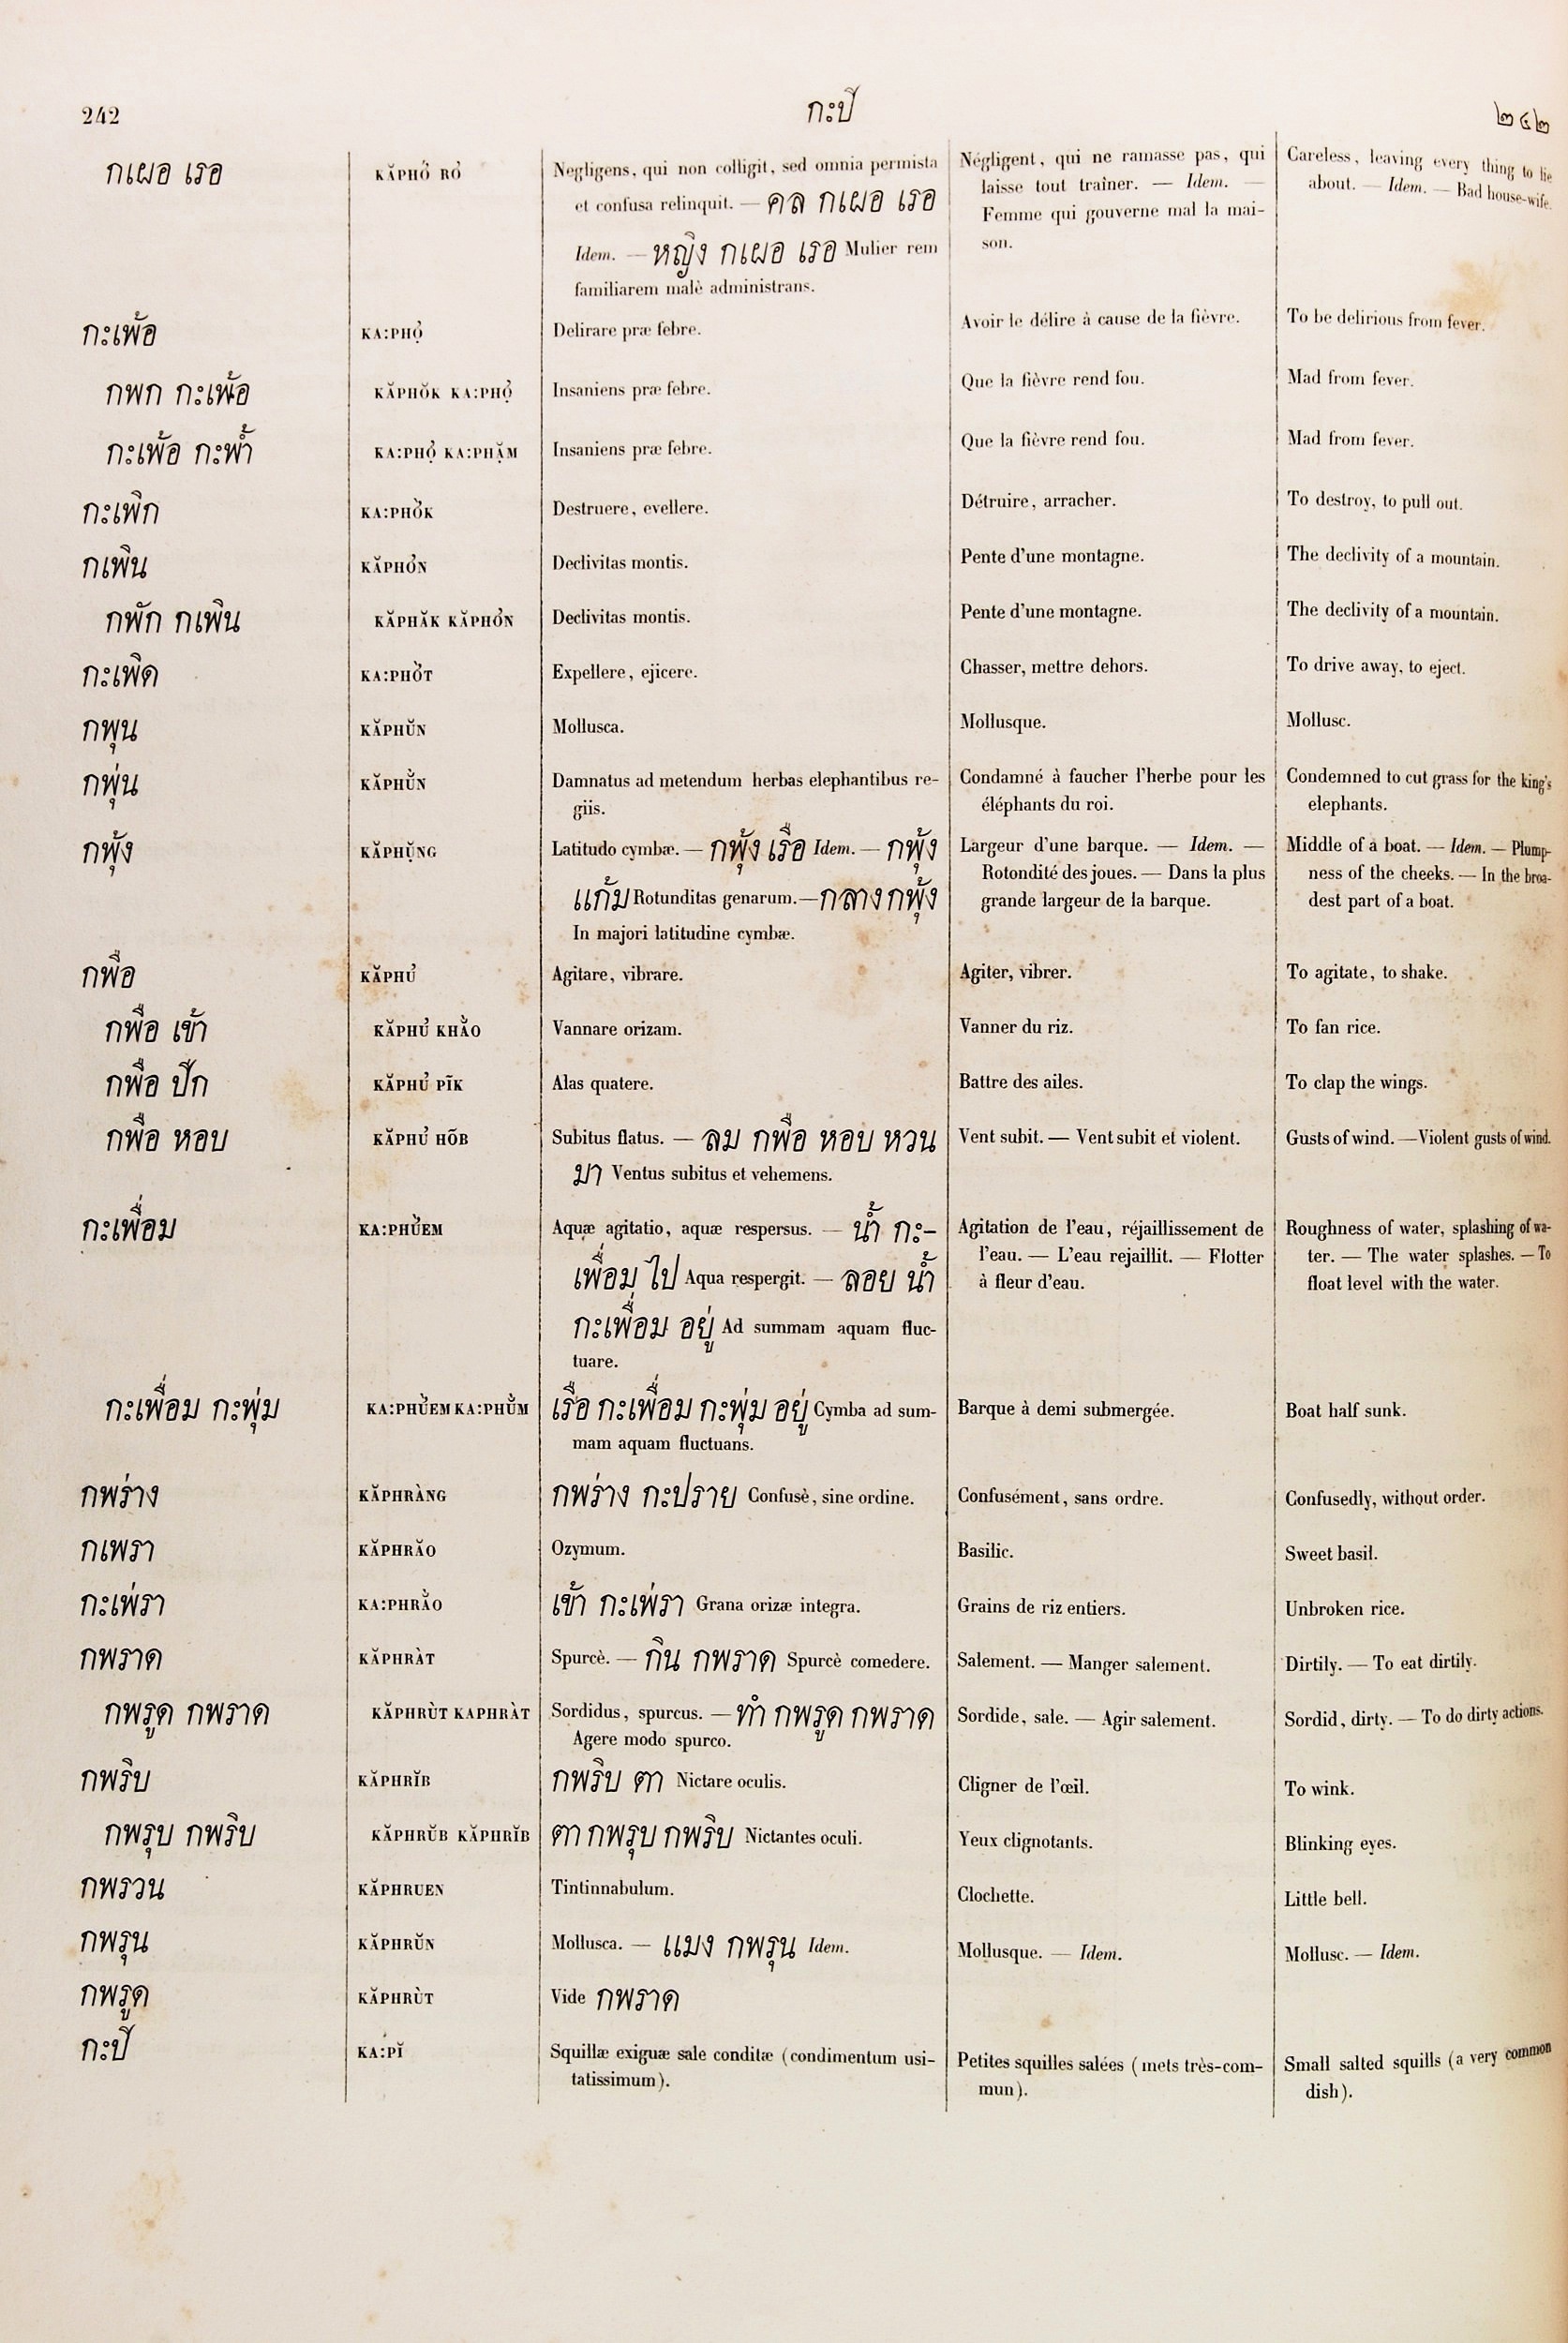 242
กะปิ
๒๔๒
กเผอ เรอ
KĂPHỎ RỎ
Negligens, qui non colligit, sed omnia permista
et confusa relinquit. — คล กเผอ เรอ
Idem. — หญิง กเผอ เรอ Mulier rem
familiarem malè administrans.
Négligent, qui ne ramasse pas, qui
laisse tout traîner. — Idem. —
Femme qui gouverne mal la mai-
son.
Careless, leaving every thing to lie
about. — Idem. — Bad house-wife.
กะเพ้อ
Delirare præ febre.
Avoir le délire à cause de la fièvre.
To be delirious from fever.
กพก กะเพ้อ
Insaniens præ febre.
Que la fièvre rend fou.
Mad from fever.
กะเพ้อ กะพ้ำ
Insaniens præ febre.
Que la fièvre rend fou.
Mad from fever.
กะเพิก
Destruere, evellere.
Détruire, arracher.
To destroy, to pull out.
กเพิน
KĂPHỎN
Declivitas montis.
Pente d'une montagne.
The declivity of a mountain.
กพัก กเพิน
KĂPHĂK KĂPHỎN
Declivitas montis.
Pente d'une montagne.
The declivity of a mountain.
กะเพิด
Expellere, ejicere.
Chasser, mettre dehors.
To drive away, to eject.
กพุน
KĂPHŬN
Mollusca.
Mollusque.
Mollusc.
กพุ่น
KĂPHŬ̀N
Damnatus ad metendum herbas elephantibus re-
giis.
Condamné à faucher l'herbe pour les
éléphants du roi.
Condemned to cut grass for the king's
elephants.
กพุ้ง
KĂPHỤ̆NG
Latitudo cymbæ. — กพุ้ง เรือ Idem. — กพุ้ง
แก้ม Rotunditas genarum. — กลาง กพุ้ง
In majori latitudine cymbæ.
Largeur d'une barque. — Idem. —
Rotondité des joues. — Dans la plus
grande largeur de la barque.
Middle of a boat. — Idem. — Plump-
ness of the cheeks. — In the broa-
dest part of a boat.
กพือ
KĂPHỦ
Agitare, vibrare.
Agiter, vibrer.
To agitate, to shake.
กพือ เข้า
KĂPHỦ KHẰO
Vannare orizam.
Vanner du riz.
To fan rice.
กพือ ปีก
KĂPHỦ PĨK
Alas quatere.
Battre des ailes.
To clap the wings.
กพือ หอบ
KĂPHỦ HÕB
Subitus flatus. — ลม กพือ หอบ หวน
มา Ventus subitus et vehemens.
Vent subit. — Vent subit et violent.
Gusts of wind. — Violent gusts of wind.
กะเพื่อม
KA:PHỦ̀EM
Aquæ agitatio, aquæ respersus. — น้ำ กะ-
เพื่อม ไป Aqua respergit. — ลอย น้ำ
กะเพื่อม อยู่ Ad summam aquam fluc-
tuare.
Agitation de l'eau, réjaillissement de
l'eau. — L'eau rejaillit. — Flotter
à fleur d'eau.
Roughness of water, splashing of wa-
ter. — The water splashes. — To
float level with the water.
กะเพื่อม กะพุ่ม
KA:PHỦ̀EM KA:PHŬ̀M
เรือ กะเพื่อม กะพุ่ม อยู่ Cymba ad sum-
mam aquam fluctuans.
Barque à demi submergée.
Boat half sunk.
กพร่าง
KĂPHRÀNG
กพร่าง กะปราย Confusè, sine ordine.
Confusément, sans ordre.
Confusedly, without order.
กเพรา
KĂPHRĂO
Ozymum.
Basilic.
Sweet basil.
กะเพ่รา
KA:PHRẰO
เข้า กะเพ่รา Grana orizæ integra.
Grains de riz entiers.
Unbroken rice.
กพราด
KĂPHRÀT
Spurcè. — กิน กพราด Spurcè comedere.
Salement. — Manger salement.
Dirtily. — To eat dirtily.
กพรูด กพราด
KĂPHRÙT KAPHRÀT
Sordidus, spurcus. — ทำ กพรูด กพราด
Agere modo spurco.
Sordide, sale. — Agir salement.
Sordid, dirty. — To do dirty actions.
กพริบ
KĂPHRĬB
กพริบ ตา Nictare oculis.
Cligner de l'œil.
To wink.
กพรุบ กพริบ
KĂPHRŬB KĂPHRĬB
ตา กพรุบ กพริบ Nictantes oculi.
Yeux clignotants.
Blinking eyes.
กพรวน
KĂPHRUEN
Tintinnabulum.
Clochette.
Little bell.
กพรุน
KĂPHRŬN
Mollusca. — แมง กพรุน Idem.
Mollusque. — Idem.
Mollusc. — Idem.
กพรูด
KĂPHRÙT
Vide กพราด
กะปิ
KA:PĬ
Squillæ exiguæ sale conditæ (condimentum usi-
tatissimum).
Petites squilles salées (mets très-com-
mun).
Small salted squills (a very common
dish).